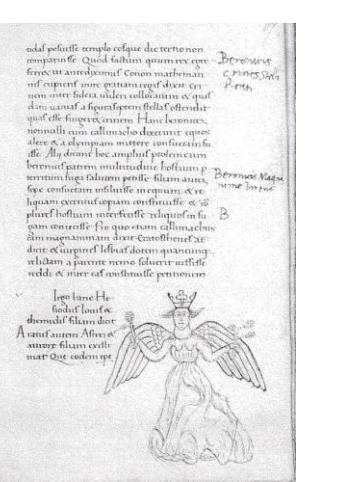 tidas posuisse templo eosque die tertio non
comparuisse Quod factum quum rex egre
ferret ut ante diximus Conon mathemati
cus cupiens inire gratiam regis dixit cri
nem inter sidera videri collocatum & quas
dam vacuas a figura septem stellas ostendit
quas esse fingeret crinem Hanc beronices
nonnulli cum callimacho dixerunt equos
alere & a olympiam mittere consuetam fu
isse Alii dicunt hoc amplius ptolemeum
beronicis patrem multitudine hostium p
territum fuga salutem petisse filiam autem
sepe consuetam insiluisse in equum & re
liquam exercitus copiam constituisse & co
plures hostium interfecisse reliquos in fu
gam coniecisse Pro quo etiam callimachus
eam magnanimam dixit Eratosthenes at
dicit & virgines lesbias dotem quam
relictam a parente nemo solverit iussisse
reddi & inter eas constituisse petitionem
Beronicis
crines
Beronices Magna
B
irgo hanc He
siodus Iovis &
themidis filiam dicit
Aratus autem Astrei &
aurore filiam existi
mat Que eodem tpe